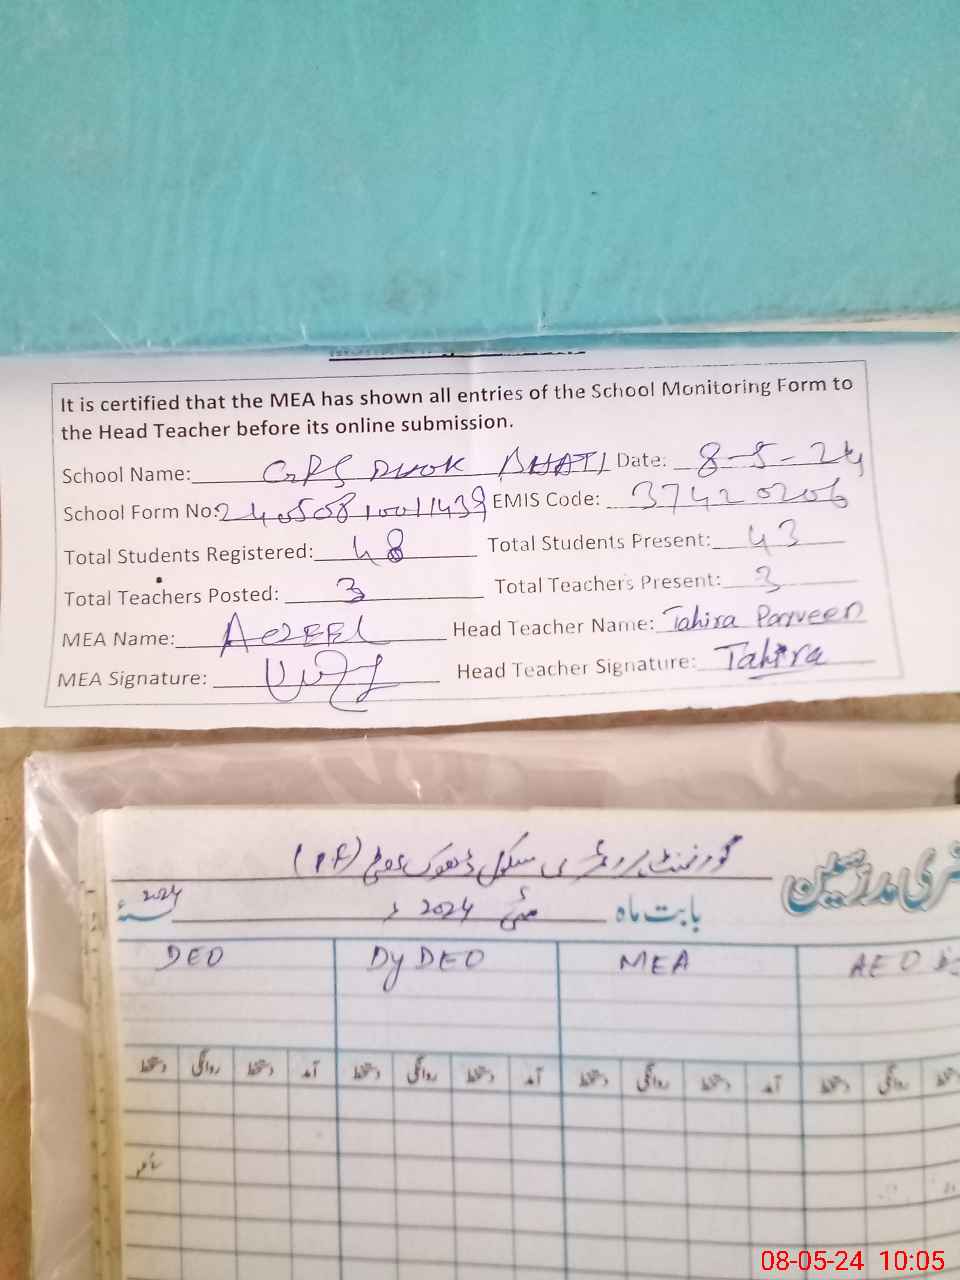 It is certified that the MEA has shown all entries of the School Monitoring Form to
the Head Teacher before its online submission.
School Name: GPS DHOK BHATI Date: 8-5-24
School Form No: 2405081001439 EMIS Code: 37420206
Total Students Registered: 48 Total Students Present: 43
Total Teachers Posted: 3 Total Teachers Present: 3
MEA Name: Head Teacher Name: Tahira Parveen
MEA Signature: Head Teacher Signature: Tahira
گورنمنٹ پرائمری سکول ڈھوک
بابت ماہ مئی 2024ء 2024
DEO Dy DEO MEA AEO
آمد دستخط روانگی دستخط آمد دستخط روانگی دستخط آمد دستخط روانگی دستخط روانگی دستخط
08-05-24 10:05